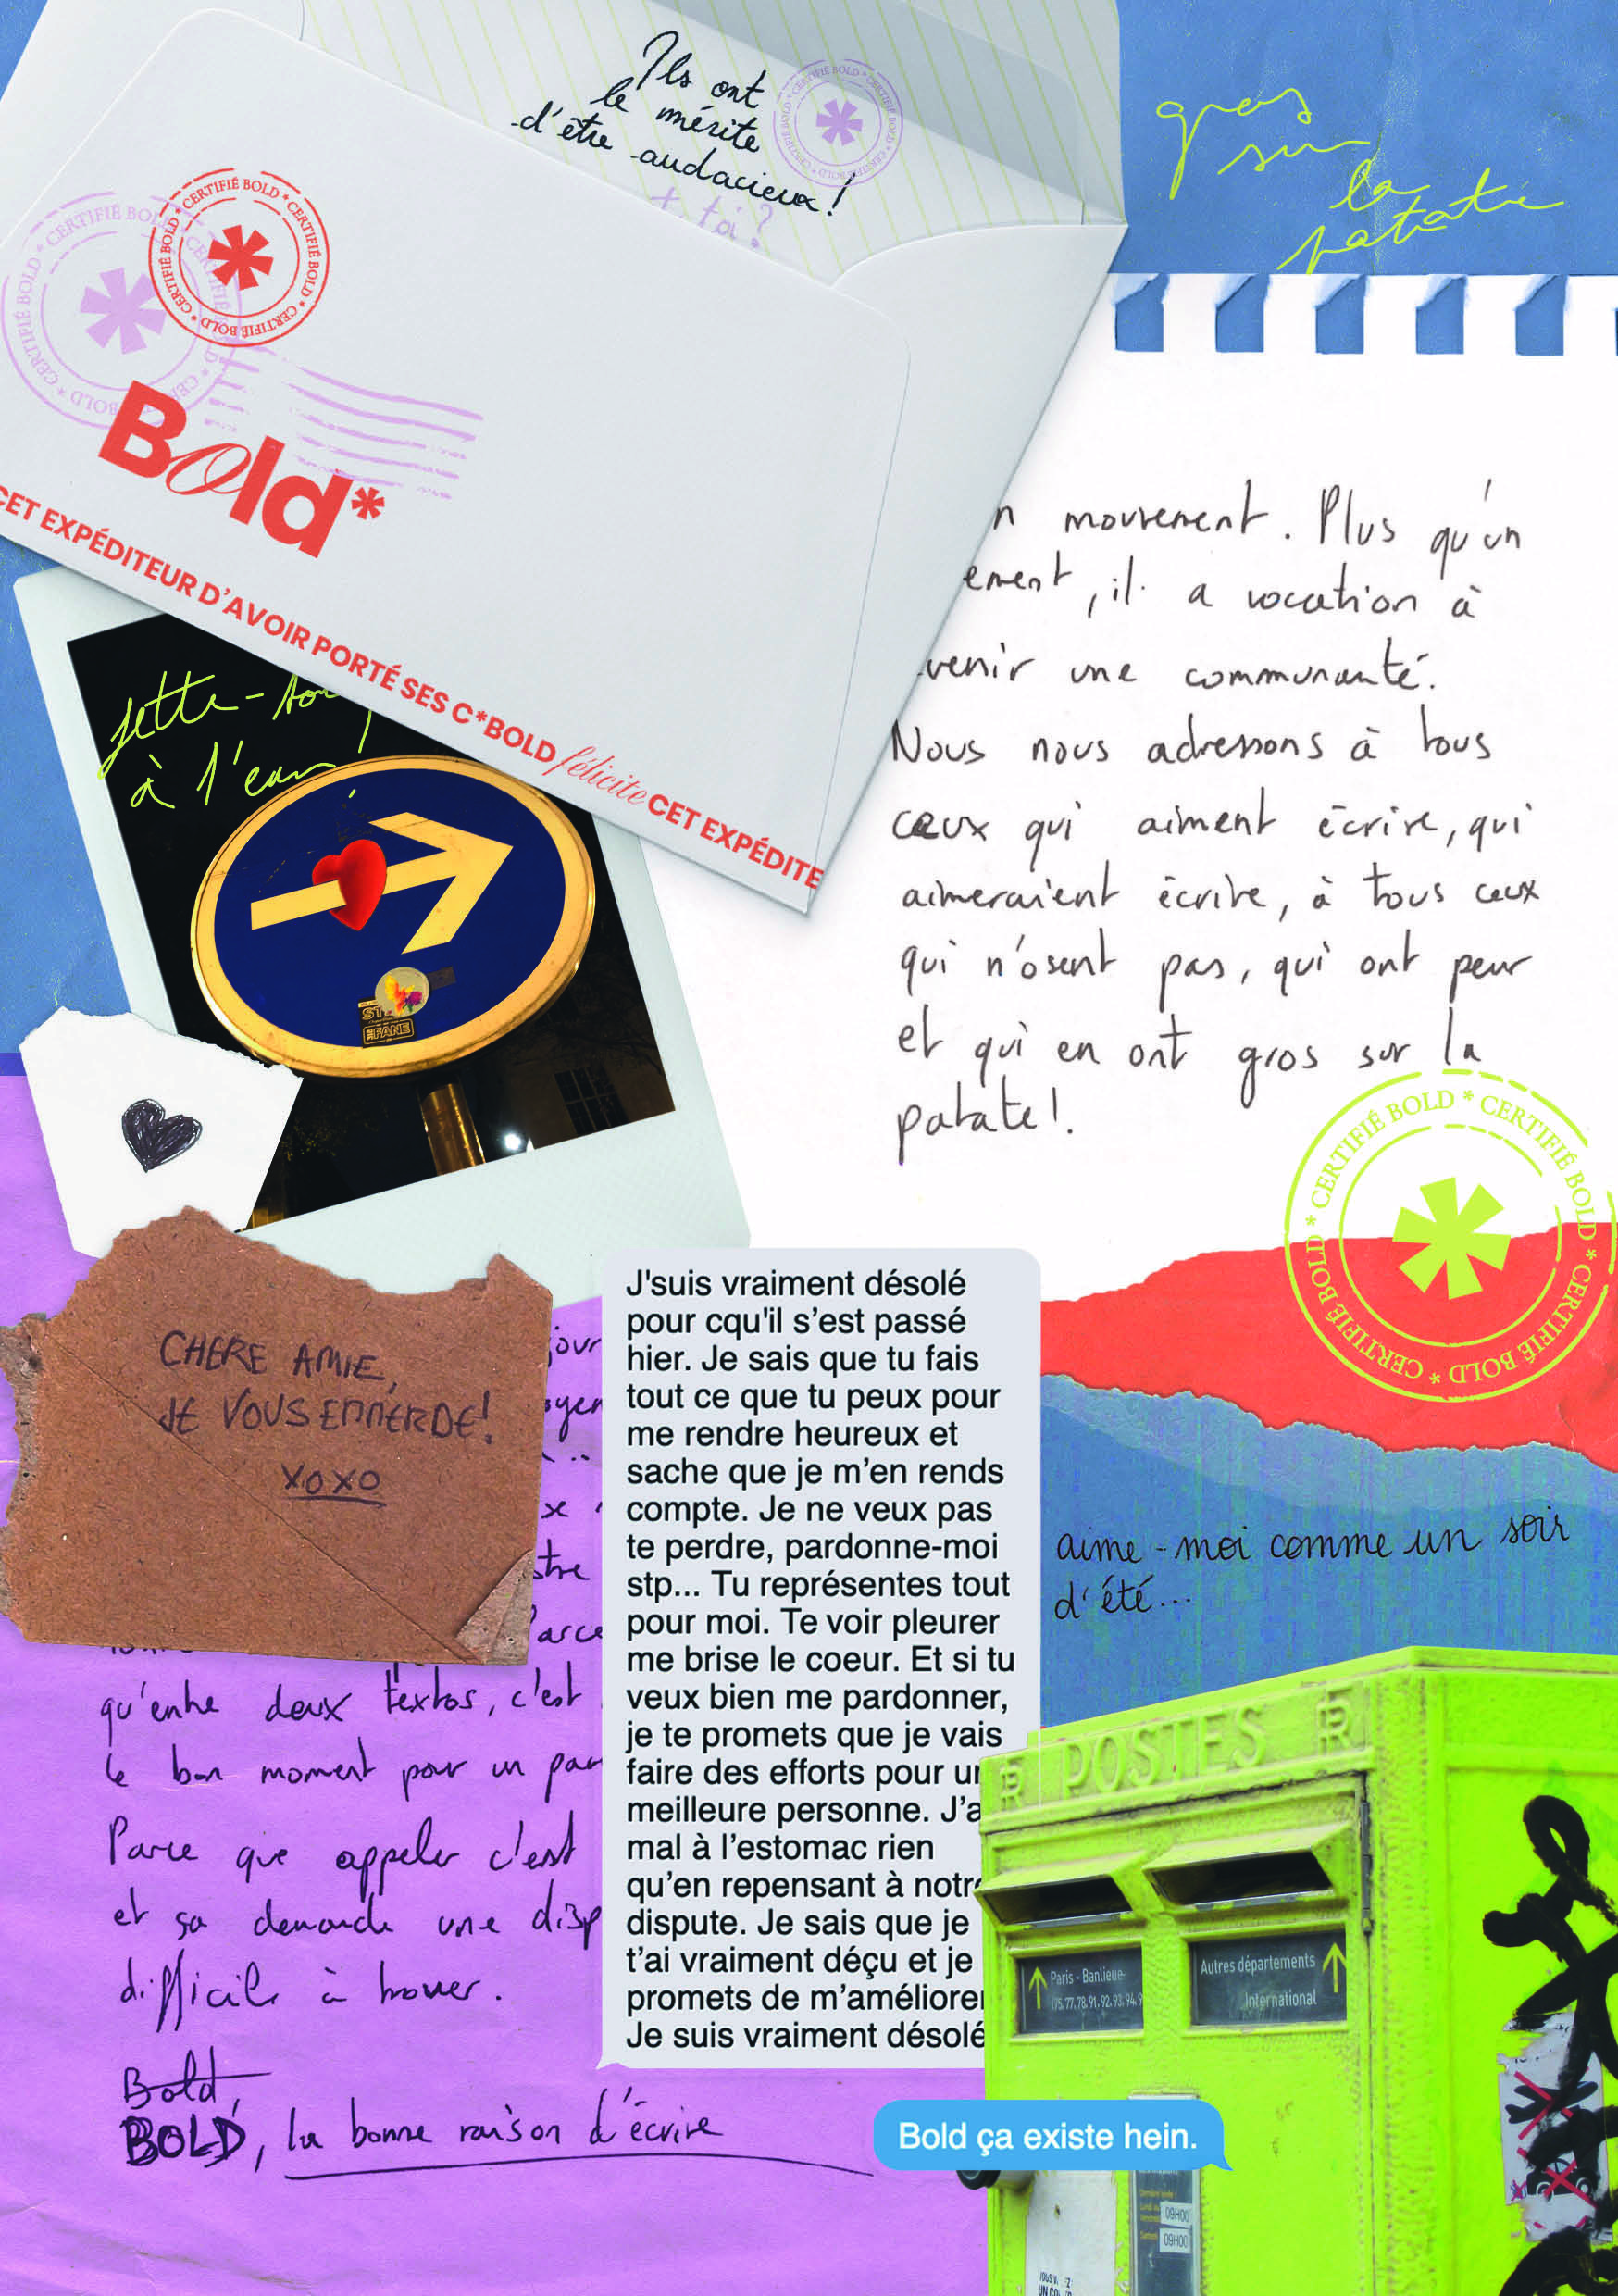 Ils ont
le mérite
d'être audacieux!
t toi ?
gros
sur
la
patate
CERTIFIÉ BOLD * CERTIFIÉ BOLD * CERTIFIÉ BOLD * CERTIFIÉ BOLD *
Bold*
CET EXPÉDITEUR D'AVOIR PORTÉ SES C*BOLD félicite CET EXPÉDITE
n mouvement. Plus qu'un
ement, il a vocation à
venir une communauté.
Nous nous adressons à tous
ceux qui aiment écrire, qui
aimeraient écrire, à tous ceux
qui n'osent pas, qui ont peur
et qui en ont gros sur la
patate!.
jette-toi
à l'eau !
CERTIFIÉ BOLD * CERTIFIÉ BOLD * CERTIFIÉ BOLD * CERTIFIÉ BOLD *
CHERE AMIE,
JE VOUS EMMERDE!
XOXO
jour
oyen
se
stre
Parce
qu'entre deux textos, c'est
le bon moment pour un par
Parce que appeler c'est
et ça demande une disp
difficile à trouver.
Bold,
BOLD, la bonne raison d'écrire
J'suis vraiment désolé
pour cqu'il s'est passé
hier. Je sais que tu fais
tout ce que tu peux pour
me rendre heureux et
sache que je m'en rends
compte. Je ne veux pas
te perdre, pardonne-moi
stp... Tu représentes tout
pour moi. Te voir pleurer
me brise le coeur. Et si tu
veux bien me pardonner,
je te promets que je vais
faire des efforts pour un
meilleure personne. J'a
mal à l'estomac rien
qu'en repensant à notre
dispute. Je sais que je
t'ai vraiment déçu et je
promets de m'améliorer
Je suis vraiment désolé
Bold ça existe hein.
aime-moi comme un soir
d'été...
POSTES
Paris - Banlieue
75.77.78.91.92.93.94.9
Autres départements
International
09H00
09H00